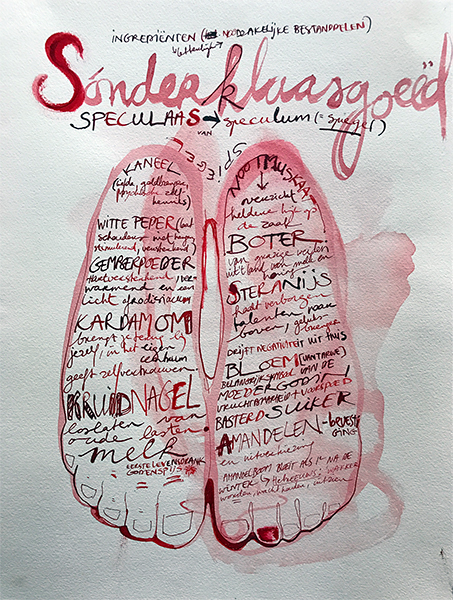 INGREDIËNTEN ( NOODZAKELIJKE BESTANDDELEN)
letterlijk
Sónderklaasgoeëd
SPECULAAS → speculum (= spiegel)
VAN
SPIEGEL
KANEEL
(liefde, geldbrenger,
psychische zelf-
kennis)
WITTE PEPER (laat
schouders niet hangen
stimulerend, versterkend)
GEMBERPOEDER
hartversterkend, ver-
warmend en een
licht afrodisiacum
KARDAMOM
brengt je terug bij
jezelf, in het eigen
centrum
geeft zelfvertrouwen
KRUIDNAGEL
loslaten van
oude lasten
melk
EERSTE LEVENSDRANK
GODENSPIJS
NOOTMUSKAAT
↓
overzicht
heldere kijk op
de zaak
BOTER
van grazige weiden
uit 't land van melk en
honing
STERANIJS
haalt verborgen
talenten naar
boven, geluks-
brenger
DRIJFT NEGATIVITEIT UIT HUIS
BLOEM (VAN TARWE)
BELANGRIJK SYMBOOL VAN DE
MOEDERGODIN,
VRUCHTBAARHEID + VOORSPOED
BASTERD SUIKER
AMANDELEN-BEVESTI
GING
en uitverkiezing
AMANDELBOOM BLOEIT ALS 1e NA DE
WINTER → Hebreeuws: WAKKER
worden, wacht houden, intens